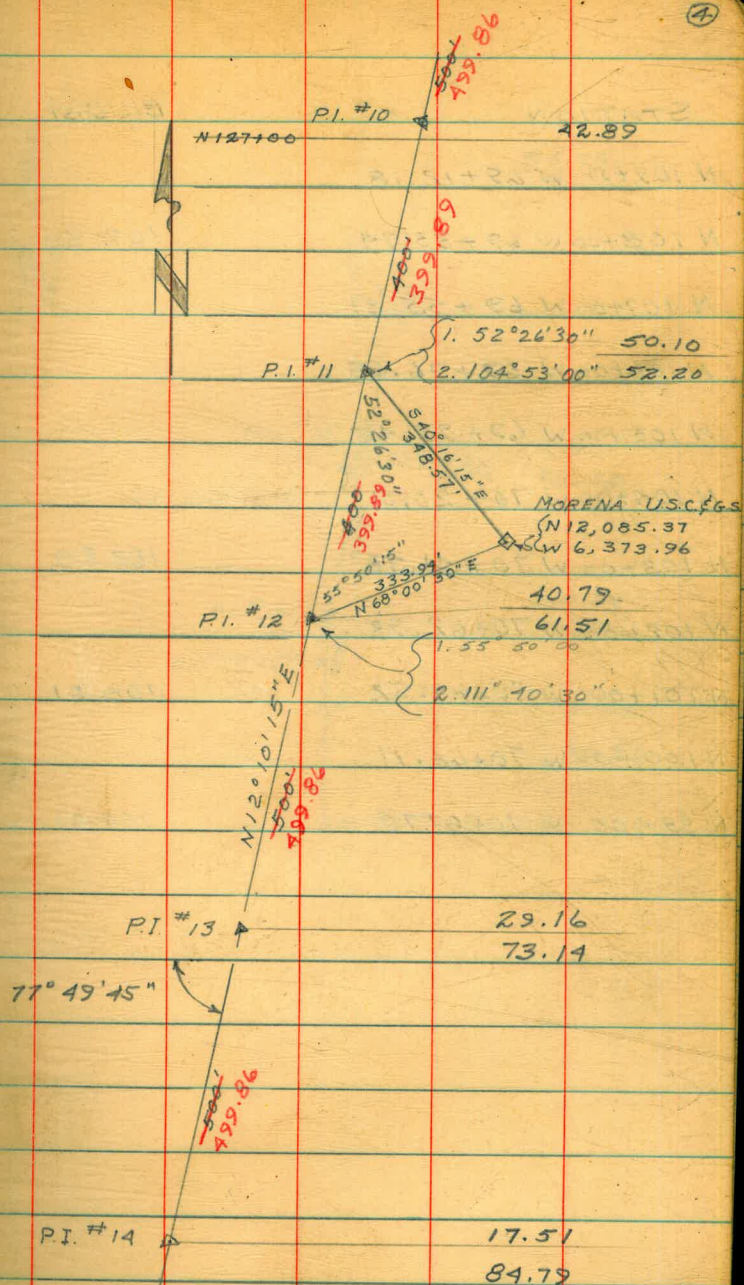 4
500'
499.86
P.I. #10
N127+00
42.89
400'
399.89
1. 52°26'30" 50.10
P.I. #11
2. 104°53'00" 52.20
52°26'30"
S 40°16'15"E
348.57'
400
399.89
MORENA U.S.C.&G.S
N 12,085.37
W 6,373.96
55°50'15"
333.94'
N 68°00'30"E
40.79
P.I. #12
61.51
1. 55°50'00
2. 111°40'30"
N12°10'15"E
500'
499.86
P.I. #13
29.16
73.14
77°49'45"
500'
499.86
P.I. #14
17.51
84.79